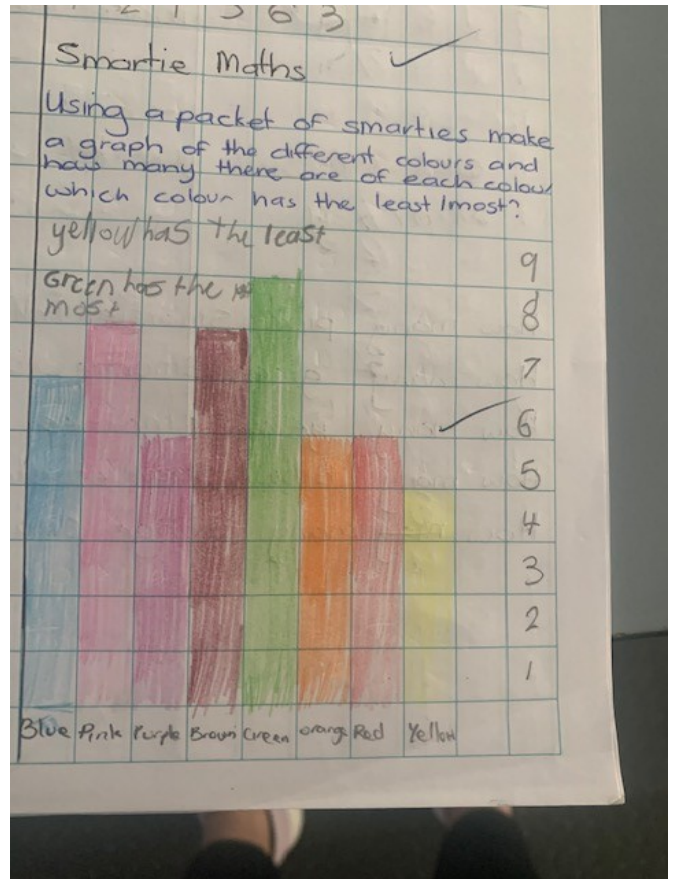 2 1 5 6 3
Smartie Maths
Using a packet of smarties make
a graph of the different colours and
how many there are of each colour
which colour has the least/most?
yellow has the least
Green has the
most
9
8
7
6
5
4
3
2
1
Blue Pink Purple Brown Green orange Red Yellow